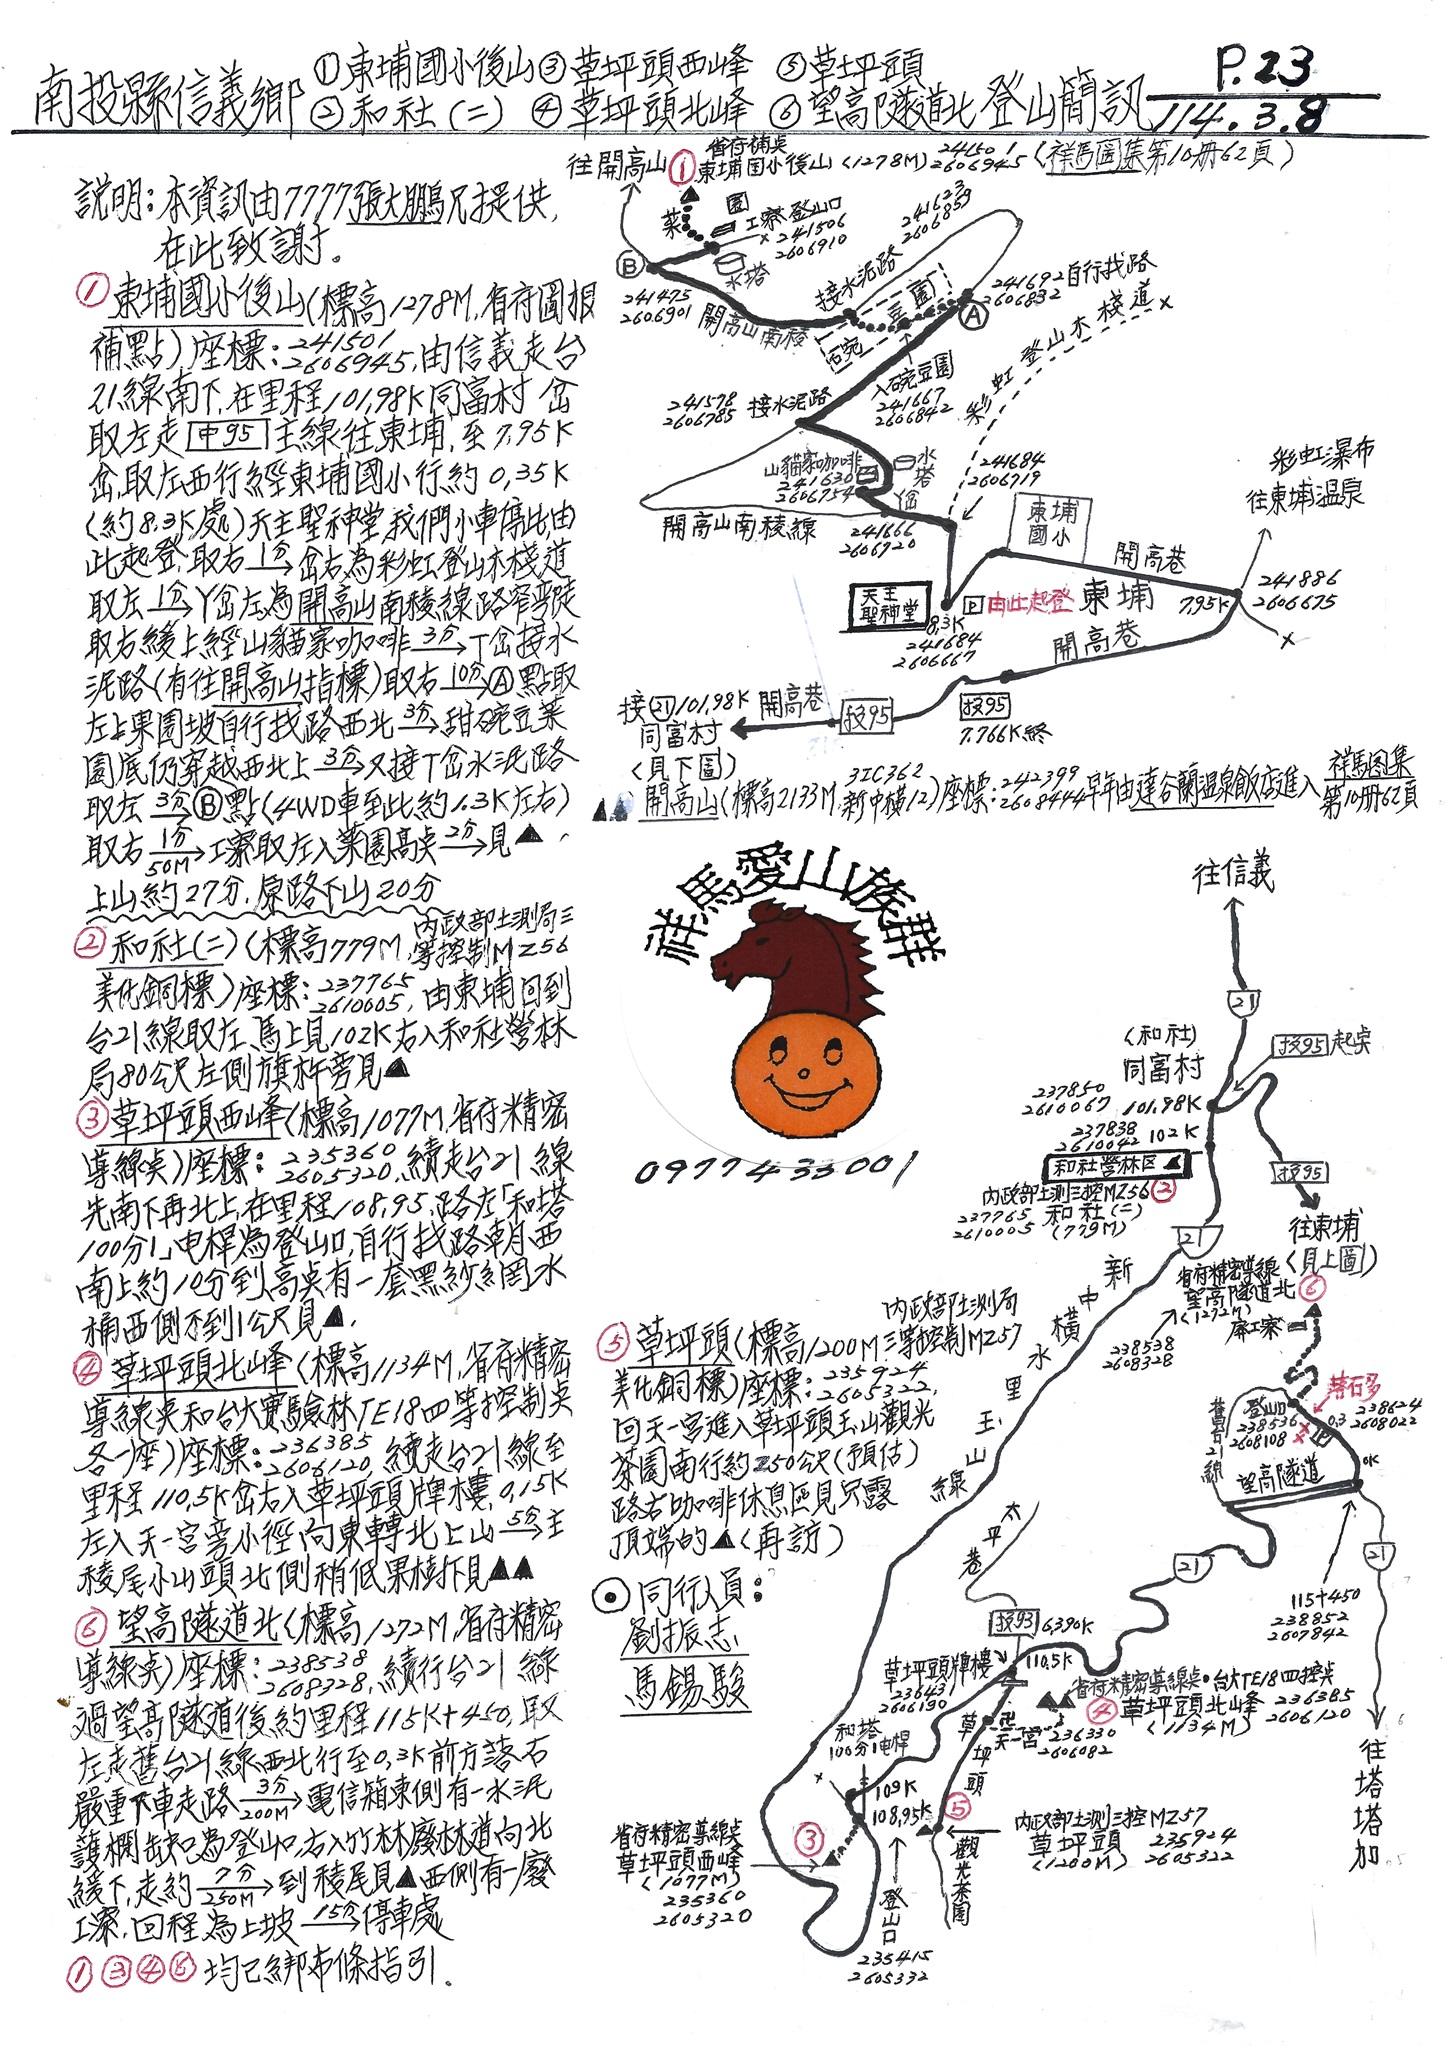 南投縣信義鄉
①東埔國小後山 ③草坪頭西峰 ⑤草坪頭
②和社(二) ④草坪頭北峰 ⑥望高隧道北 登山簡訊
P.23
114.3.8
說明:本資訊由7777張大鵬兄提供,
在此致謝。
①東埔國小後山(標高1278M,省府圖根
補點)座標:241501 2606945,由信義走台
21線南下,在里程101.98K同富村岔
取左走 中95 主線往東埔,至7.95K
岔,取左西行經東埔國小行約0.35K
(約8.3K處)天主聖神堂,我們小車停此,由
此起登,取右 1分→岔右為彩虹登山木棧道
取左 1分→Y岔左為開高山南稜線路窄彎陡
取右緩上經山貓家咖啡 3分→T岔接水
泥路(有往開高山指標)取右 10分→Ⓐ點取
左上果園坡自行找路西北 3分→甜碗豆菜
園底仍穿越西北上 3分→又接T岔水泥路
取左 3分→Ⓑ點(4WD車到此約1.3K左右)
取右 1分 50M→工寮取左入菜園高点 2分→見▲.
上山約27分.原路下山20分
②和社(二)(標高779M,內政部土測局三等控制MZ56
美化銅標)座標:237765 2610005,由東埔回到
台21線取左,馬上見102K右入和社營林
局80公尺左側旗杆旁見▲
③草坪頭西峰(標高1077M,省府精密
導線点)座標:235360 2605320,續走台21線
先南下再北上,在里程108.95,路左「和塔
100分1」电桿為登山口,自行找路朝西
南上約10分到高点有一套黑紗網水
桶西側不到1公尺見▲.
④草坪頭北峰(標高1134M,省府精密
導線点和台大實驗林TE18四等控制点
各一座)座標:236385 2606120,續走台21線至
里程110.5K岔右入草坪頭牌樓,0.15K
左入天一宮旁小徑,向東轉北上山 5分→主
稜尾小山頭北側稍低果樹下見▲▲
⑥望高隧道北(標高1272M,省府精密
導線点)座標:238538 2608328,續行台21線
過望高隧道後約里程115K+450,取
左走舊台21線西北行至0.3K前方落石
嚴重下車走路 3分 200M→電信箱東側有一水泥
護欄缺口為登山口,右入竹林廢林道向北
緩下,走約 7分 250M→到稜尾見▲西側有一廢
工寮,回程為上坡 15分→停車處
①③④⑤均已綁布條指引.
往開高山
①省府補点
東埔国小後山(1278M) 241501 2606945(祥馬圖集第10冊62頁)
菜園
工寮
登山口
241506
2606910
水塔
Ⓑ
241475
2606901
開高山南稜
接水泥路
241623
2606859
碗豆園
241692
2606832
自行找路
Ⓐ
入碗豆園
241667
2606842
彩虹登山木棧道
241578
2606785
接水泥路
山貓家咖啡
241630
2606754
水塔
Y岔
開高山南稜線
241666
2606720
241684
2606719
東埔國小
彩虹瀑布
往東埔溫泉
開高巷
241886
2606675
7.95K
天主
聖神堂
P
由此起登
東埔
8.3K
241684
2606667
開高巷
投95
7.766K終
投95
開高巷
接㉑101.98K
同富村
(見下圖)
▲開高山(標高2133M,3IC362 新中橫12)座標:242399 2608444早年由達谷蘭溫泉飯店進入
祥馬図集
第10冊62頁
祥馬愛山族群
0977433001
往信義
21
(和社)
同富村
投95起点
237850
2610067
101.98K
237838
2610042
102K
和社營林区▲
內政部土測三控MZ56②
237765 和社(二)
2610005 (779M)
投95
往東埔
(見上圖)
21
新中橫
水里玉山線
省府精密導線
望高隧道北⑥
(1272M)
238538
2608328
廢工寮
落石多
登山口
238536
2608108
0.3
238624
2608022
P
舊台21線
0K
望高隧道
21
21
115+450
238852
2607842
往塔塔加
⑤草坪頭(標高1200M內政部土測局三等控制MZ57
美化銅標)座標:235924 2605322,
回天一宮進入草坪頭玉山觀光
茶園南行約250公尺(預估)
路右咖啡休息區見只露
頂端的▲(再訪)
⊙同行人員:
劉振志
馬錫駿
太平巷
投93
6.390K
草坪頭牌樓
236431
2606190
110.5K
省府精密導線点·台大TE18四控点
④草坪頭北峰 236385
(1134M) 2606120
天一宮
236330
2606082
草坪頭
和塔
100分1电桿
109K
108.95K
省府精密導線点
草坪頭西峰
(1077M)
235360
2605320
③
登山口
235415
2605332
⑤
內政部土測三控MZ57
草坪頭 235924
(1200M) 2605322
觀光茶園